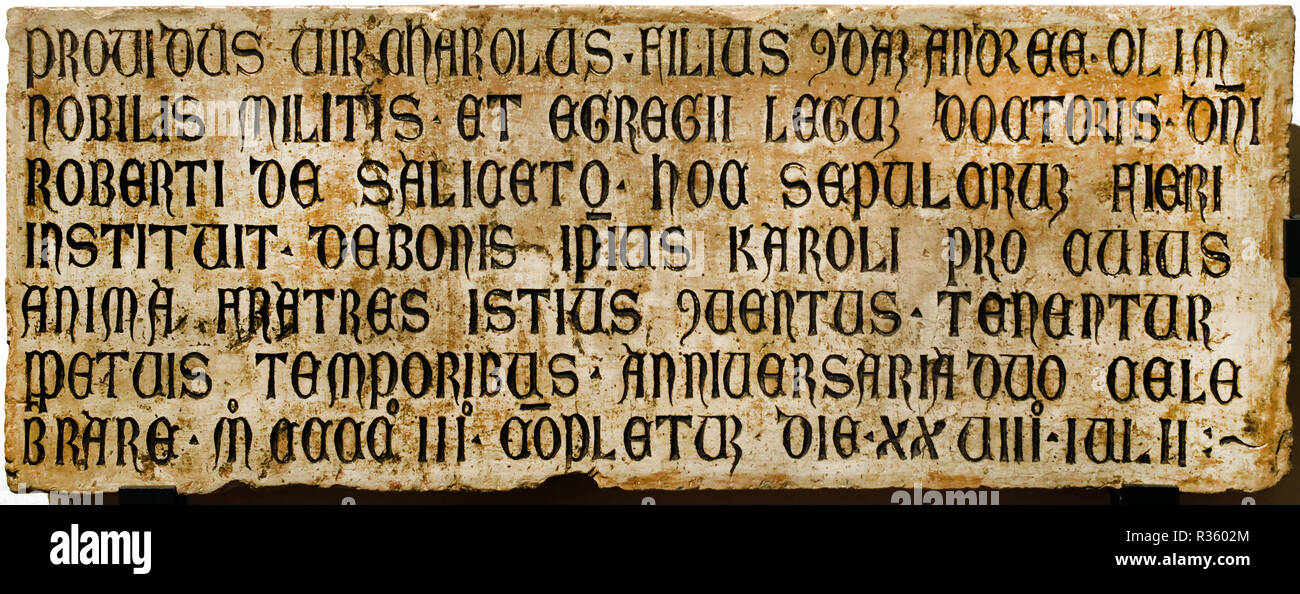 PROVIDUS VIR CHAROLUS · FILIUS ꝯDAꝫ ANDREE · OLIM
NOBILIS MILITIS · ET EGREGII LEGUꝫ DOCTORIS · DN̄I
ROBERTI DE SALICETO · HOC SEPULCRUꝫ FIERI
INSTITUIT · DE BONIS IP̄IUS KAROLI PRO CUIUS
ANIMA FRATRES ISTIUS ꝯVENTUS · TENENTUR
ꝑPETUIS TEMPORIBUS · ANNIVERSARIA DUO CELE
BRARE · M° CCCC° III° · CŌPLETUꝫ DIE · XXVIIII° · IULII :~
alamy
alamy
Image ID: R3602M
www.alamy.com